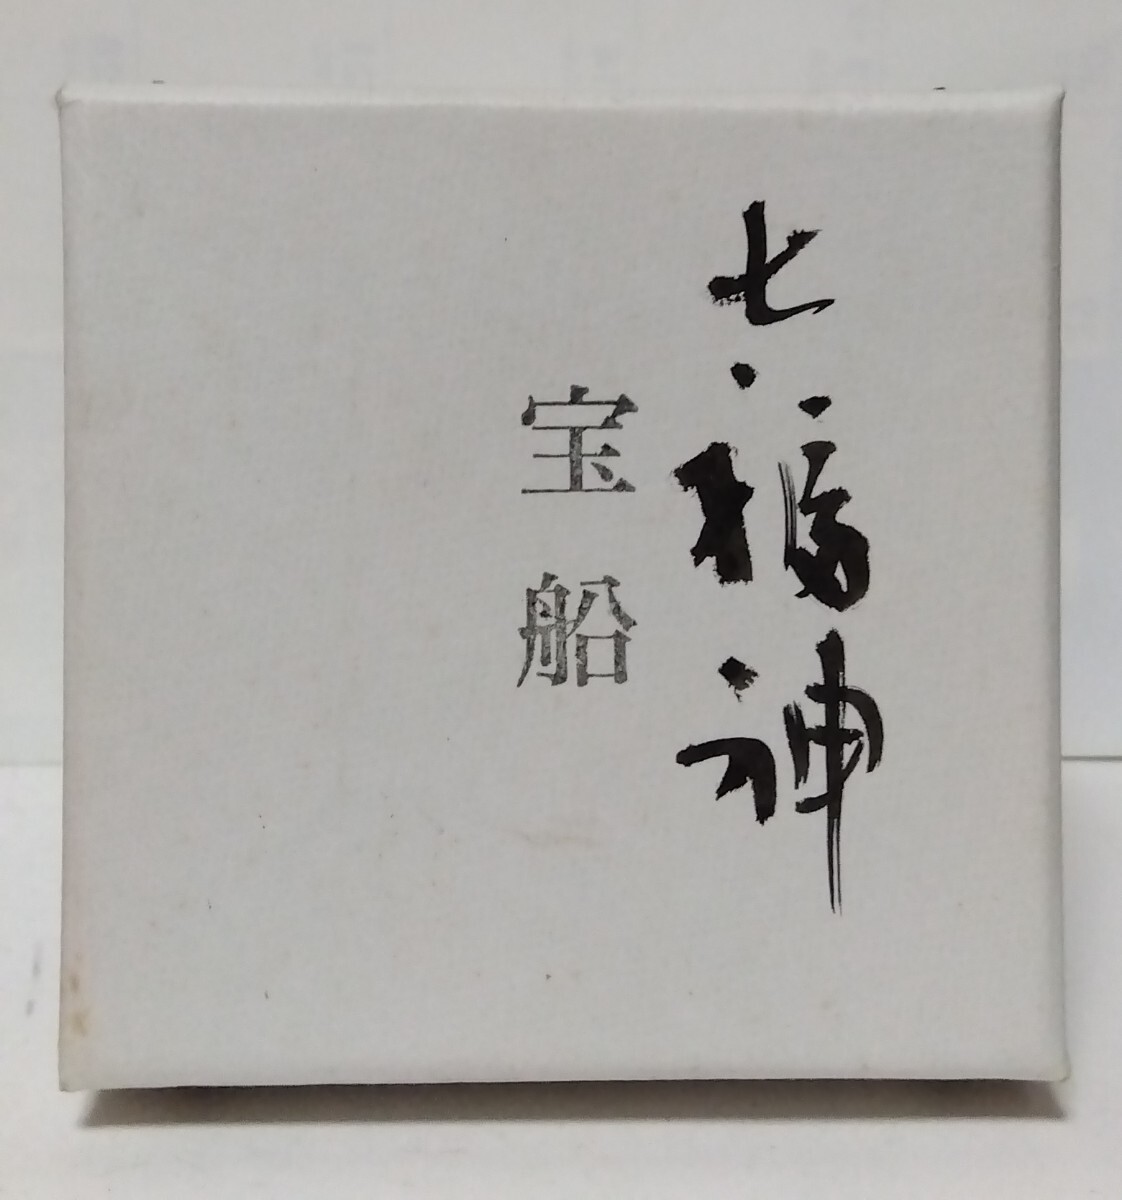 七福神
宝船